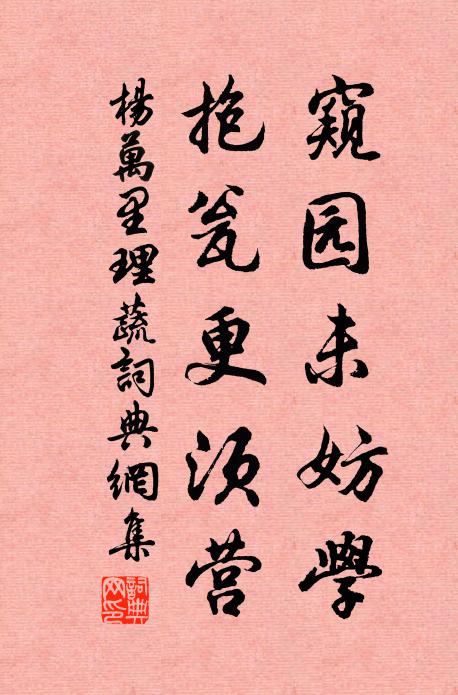 窥园未妨学
抱瓮更须营
楊萬里理蔬詞典網集
詞典网印